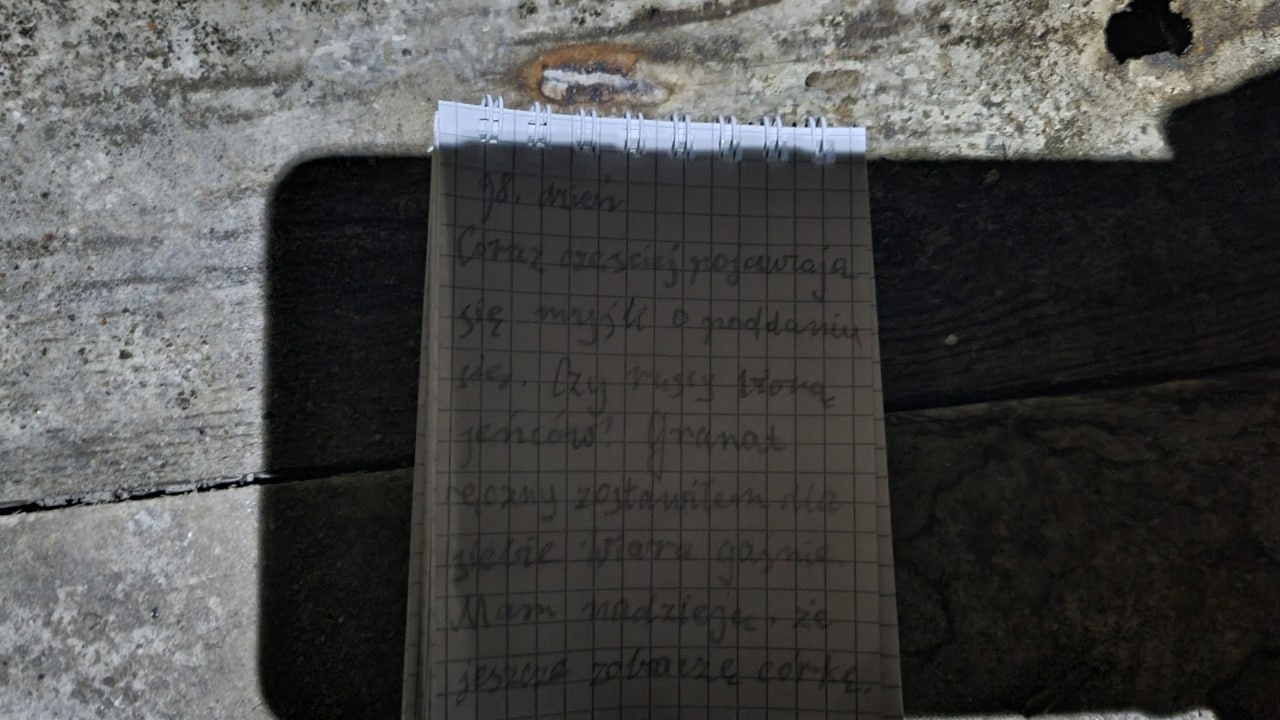 98. dzień
Coraz częściej pojawiają
się myśli o poddaniu
się. Czy ruscy biorą
jeńców? Granat
ręczny zostawiłem dla
siebie Wiara gaśnie
Mam nadzieję, że
jeszcze zobaczę córkę.